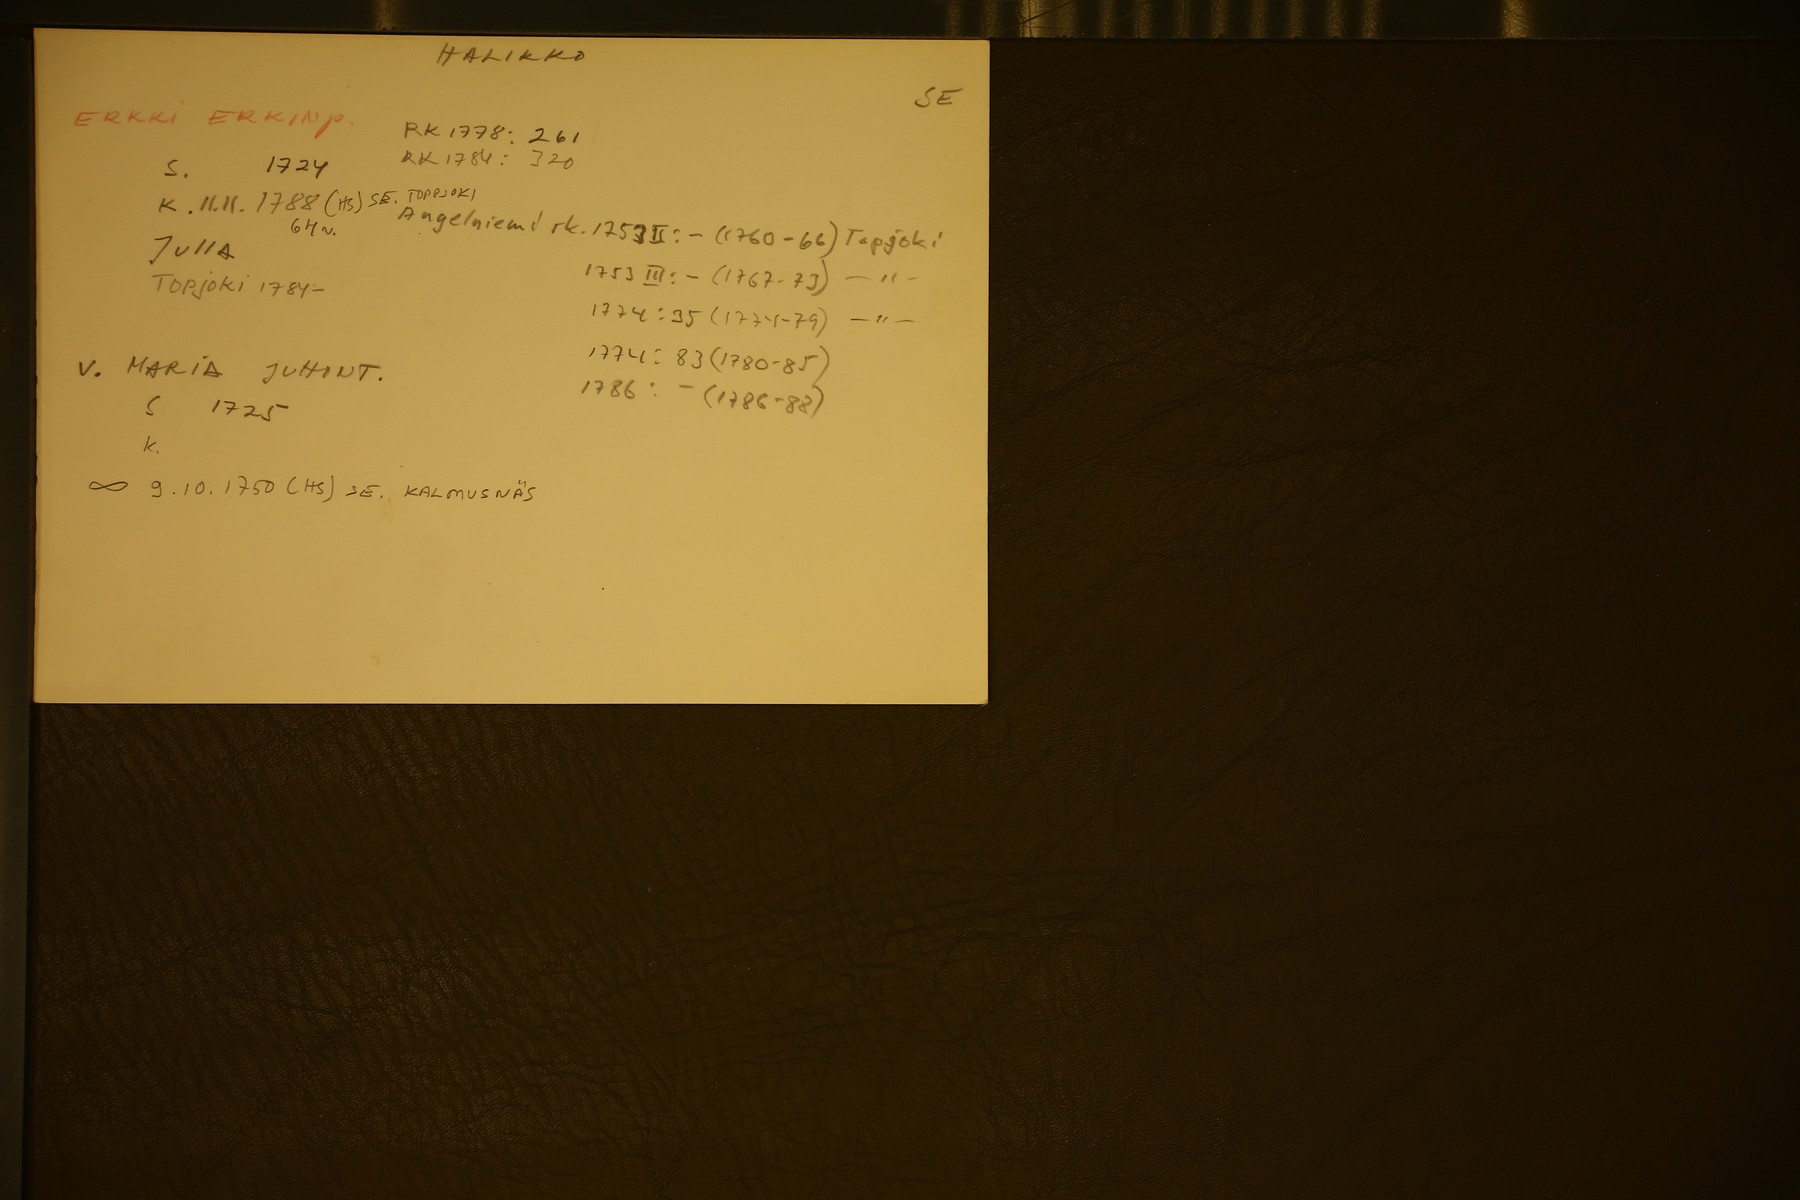 HALIKKO
SE
ERKKI ERKINP.
RK 1778: 261
RK 1784: 320
S. 1724
K. 11.11. 1788 (HS) SE. TOPPJOKI
64 v.
JULLA
Topjoki 1784-
Angelniemi rk. 1753 II: - (1760-66) Topjoki
1753 III: - (1767-73) — " —
1774: 35 (1774-79) — " —
1774: 83 (1780-85)
1786: - (1786-88)
V. MARIA JUHONT.
S 1725
k.
∞ 9.10.1750 (HS) SE. KALMUSNÄS